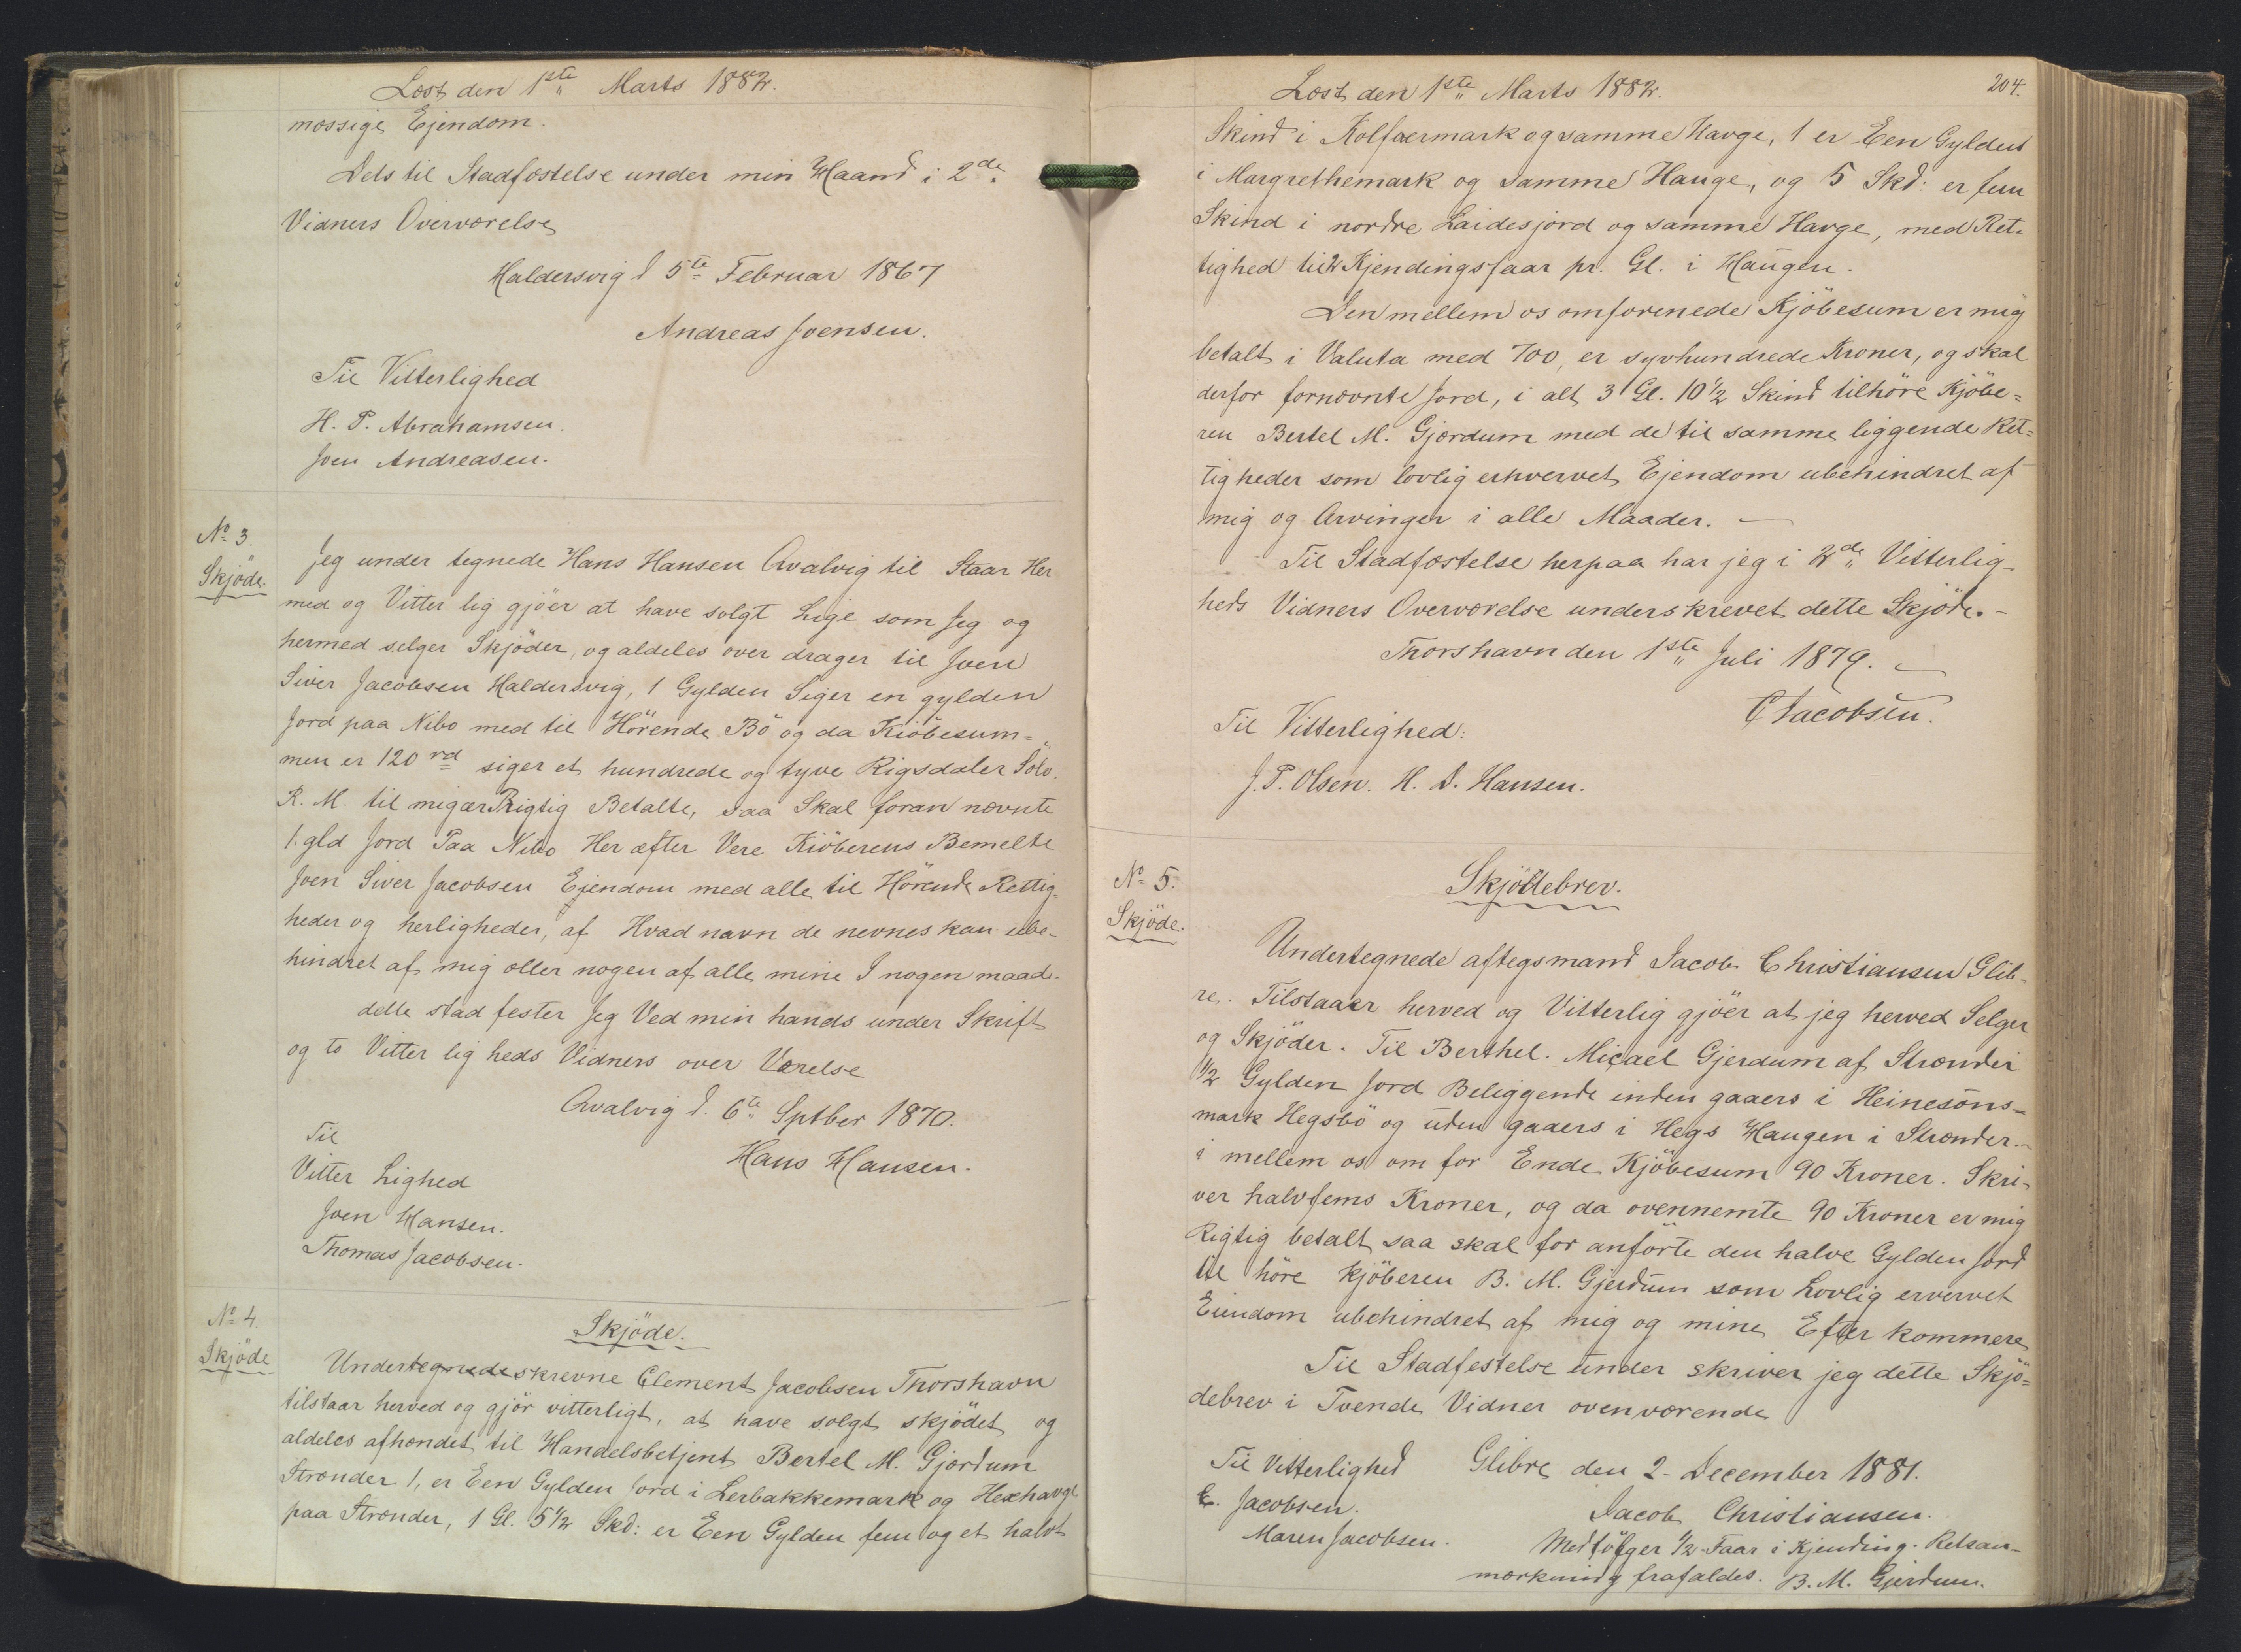 Læst den 1ste Marts 1882.
mæssige Ejendom.
Dets til Stadfæstelse under min Haand i 2de
Vidners Overværelse
Haldersvig d 5te Februar 1867
Andreas Joensen.
Til Vitterlighed
H. P. Abrahamsen.
Joen Andreasen.
No 3.
Skjöde.
Jeg under tegnede Hans Hansen Qvalvig til Staar Her
med og Vitter lig gjöer at have solgt Lige som Jeg og
hermed selger Skjöder, og aldeles over drager til Joen
Siver Jacobsen Haldersvig, 1 Gylden Siger en gylden
Jord paa Nibo med til Hörende Bö og da Kiöbesum=
men er 120 rd siger et hundrede og tyve Rigsdaler Sölv.
R. M. til mig ær Rigtig Betalte, saa Skal foran nævnte
1. gld Jord Paa Nibo Her æfter Vere Kiöberens Bemelte
Joen Siver Jacobsen Ejendom med alle til Hörende Rettig=
heder og herligheder, af Hvad navn de nevnes kan ube-
hindret af mig eller nogen af alle mine I nogen maade.
dette stad fester Jeg Ved min hands under Skrift
og to Vitter lig heds Vidners over Værelse
Qvalvig d. 6te Sptber 1870.
Hans Hansen.
Til
Vitter Lighed
Joen Hansen.
Thomas Jacobsen.
No 4.
Skjöde
Skjöde.
Undertegnedeskrevne Clement Jacobsen Thorshavn
tilstaar herved og gjör vitterligt, at have solgt skjödet og
aldeles afhændet til Handelsbetjent Bertel M. Gjærdum
Strænder 1, er Een Gylden Jord i Lerbakkemark og Hexhavge
paa Strænder, 1 Gl. 5 1/2 Skd: er Een Gylden fem og et halvt
Læst den 1ste Marts 1882.
204.
Skind i Kolfaermark og samme Havge, 1 er Een Gylden
i Margrethemark og samme Hauge, og 5 Skd: er fem
Skind i nordre Laidesjord og samme Havge, med Ret-
tighed til 2 Kjendingsfaar pr. Gl. i Haugen.
Den mellem os omforenede Kjöbesum er mig
betalt i Valuta med 700, er syvhundrede Kroner, og skal
derfor fornævnte Jord, i alt 3 Gl. 10 1/2 Skind tilhöre Kjöbe=
ren Bertel M. Gjærdum med de til samme liggende Ret=
tigheder som lovlig erhvervet Ejendom ubehindret af
mig og Arvinger i alle Maader. —
Til Stadfæstelse herpaa har jeg i 2de Vitterlig-
heds Vidners Overværelse underskrevet dette Skjöde. -
Thorshavn den 1ste Juli 1879.
C Jacobsen.
Til Vitterlighed:
J. P. Olsen. H. D. Hansen.
No 5.
Skjöde.
Skjödebrev.
Undertegnede aftegsmand Jacob Christiansen Glib-
re. Tilstaaer herved og Vitterlig gjöer at jeg herved Selger
og Skjöder. Til Berthel. Micael Gjerdum af Strænder
1/2 Gylden Jord Beliggende inden gaaers i Heinesöns=
mark Hegsbö og uden gaaers i Hegs Haugen i Strænder.-
i mellem os om for Ende Kjöbesum 90 Kroner. Skri-
ver halvfems Kroner, og da ovennemte 90 Kroner er mig
Rigtig betalt saa skal for anförte den halve Gylden Jord
til höre Kjöberen B. M. Gjerdum som Lovlig ervervet
Eiendom ubehindret af mig og mine Efter kommere
Til Stadfestelse under skriver jeg dette Skjö=
debrev i Tvende Vidner ovenværende
Glibre den 2- December 1881.
Til Vitterlighed
C. Jacobsen.
Jacob Christiansen.
Maren Jacobsen.
Medfölger 1/2 Faar i Kjending. Retsan-
mærkning frafaldes. B. M. Gjerdum.